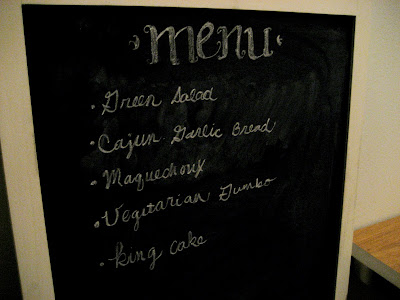 menu
· Green Salad
· Cajun Garlic Bread
· Maquechoux
· Vegetarian Gumbo
· King Cake